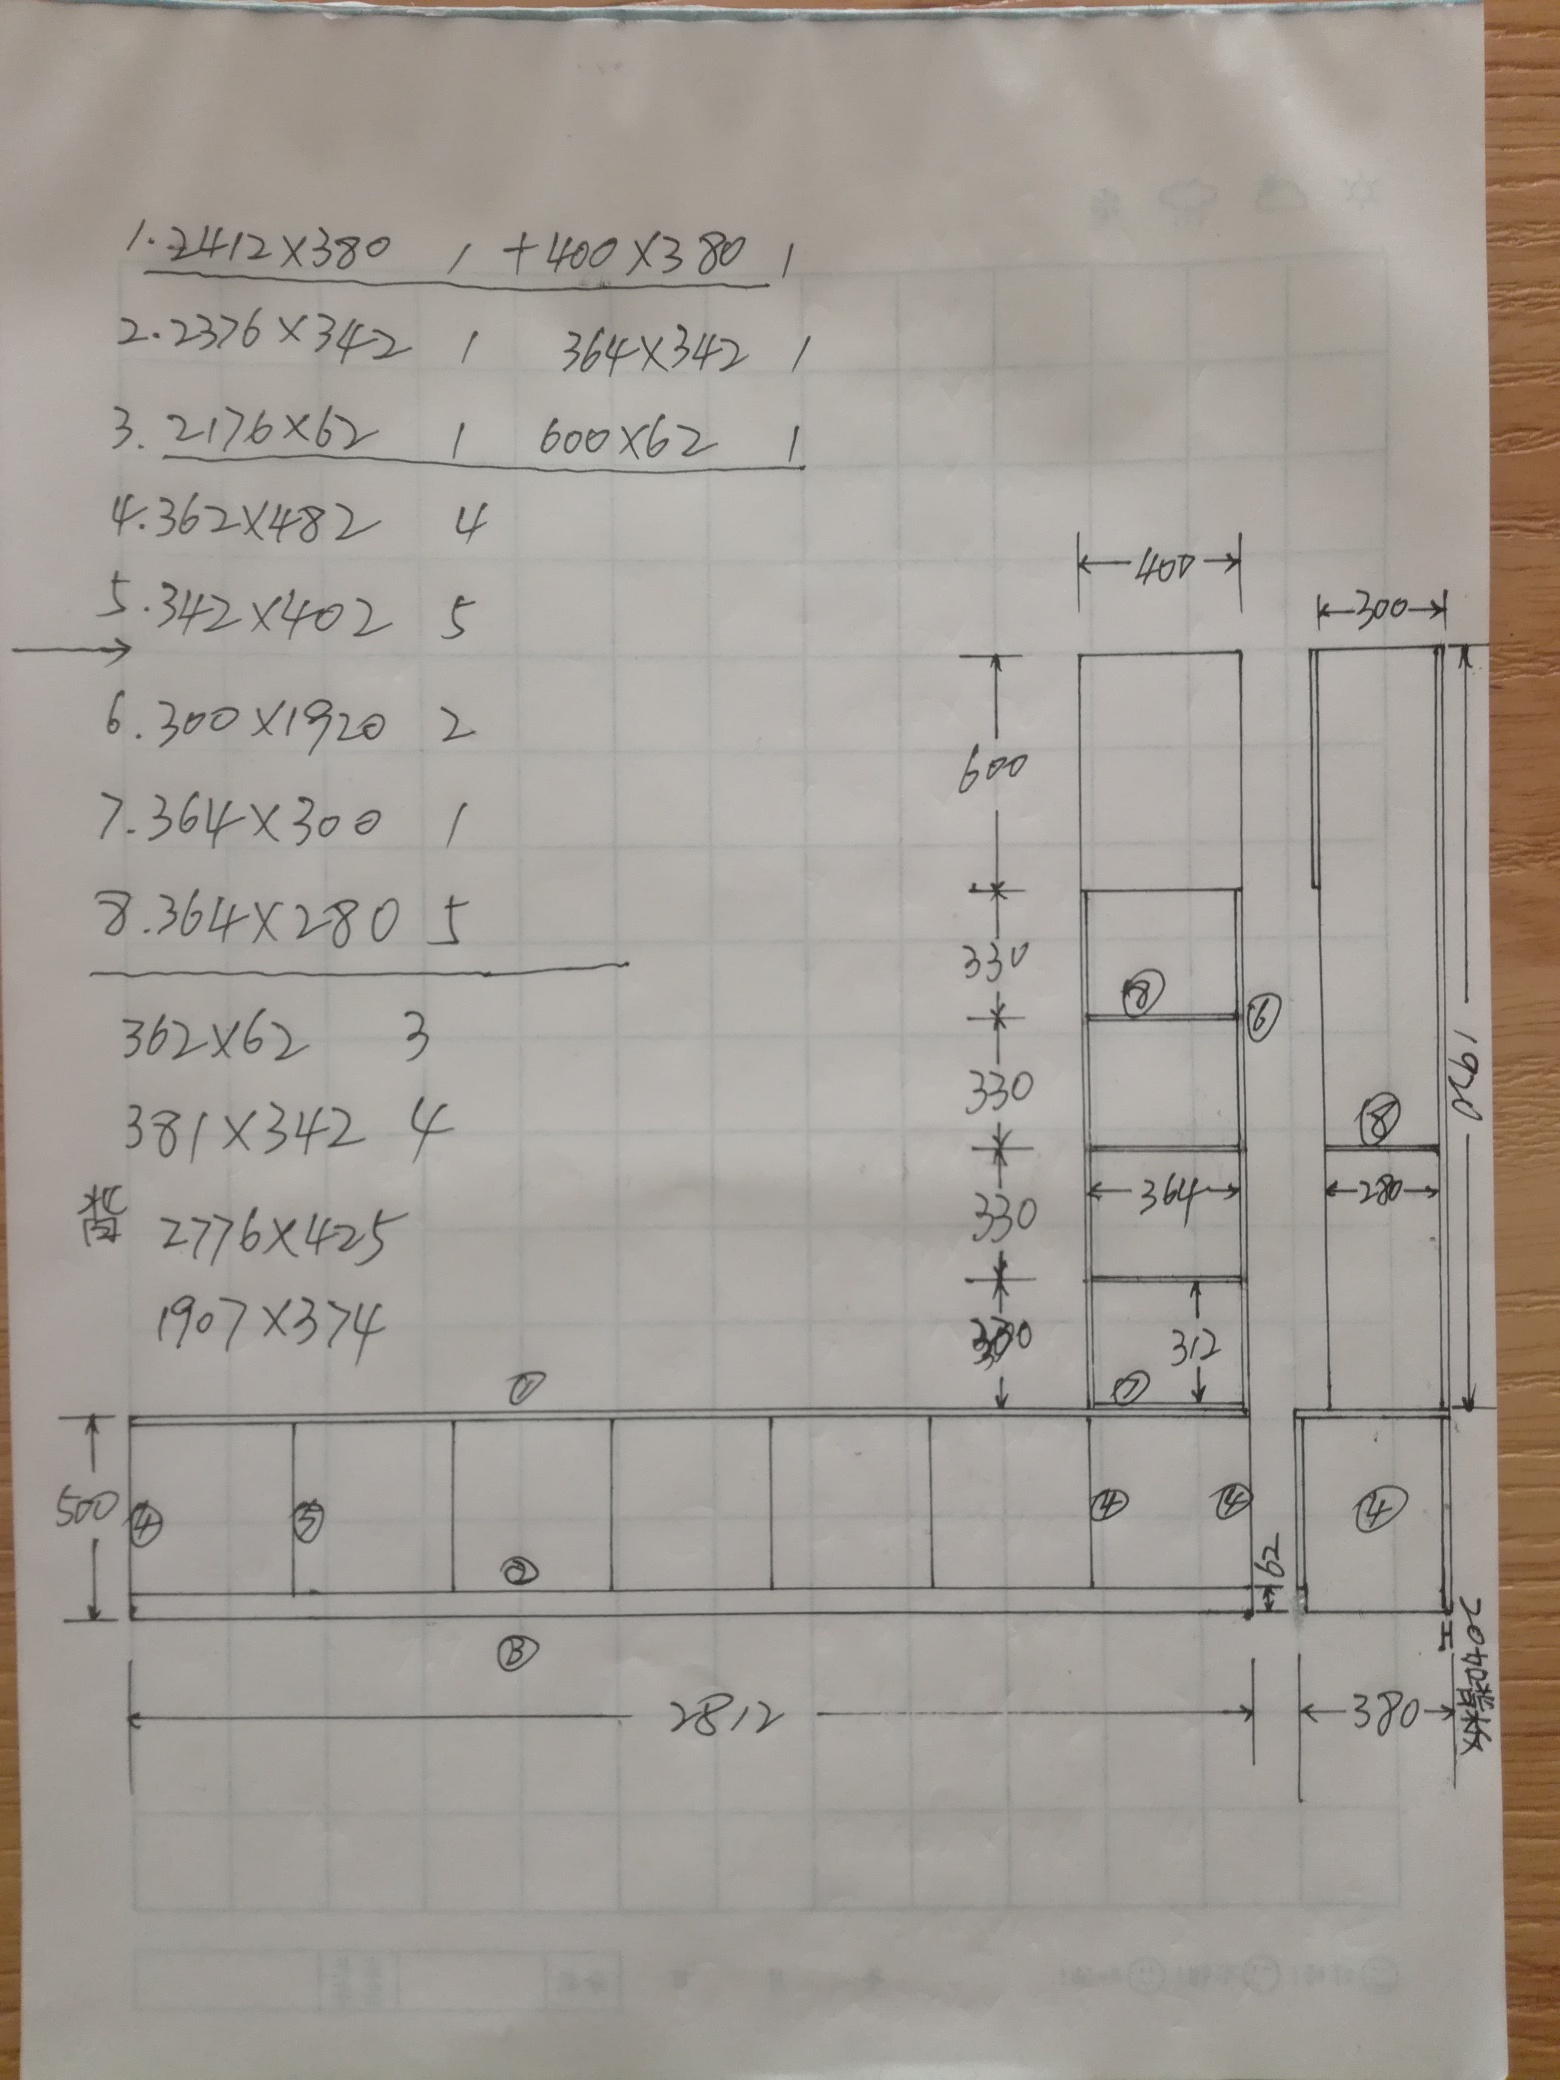 1.2412×380 1 +400×380 1
2.2376×342 1 364×342 1
3.2176×62 1 600×62 1
4.362×482 4
5.342×402 5
6.300×1920 2
7.364×300 1
8.364×280 5
362×62 3
381×342 4
背 2776×425
1907×374
400
300
600
330
⑧
⑥
330
⑧
1920
330
364
280
330
312
①
⑦
500
④
⑤
②
④
④
④
62
③
20
2812
380